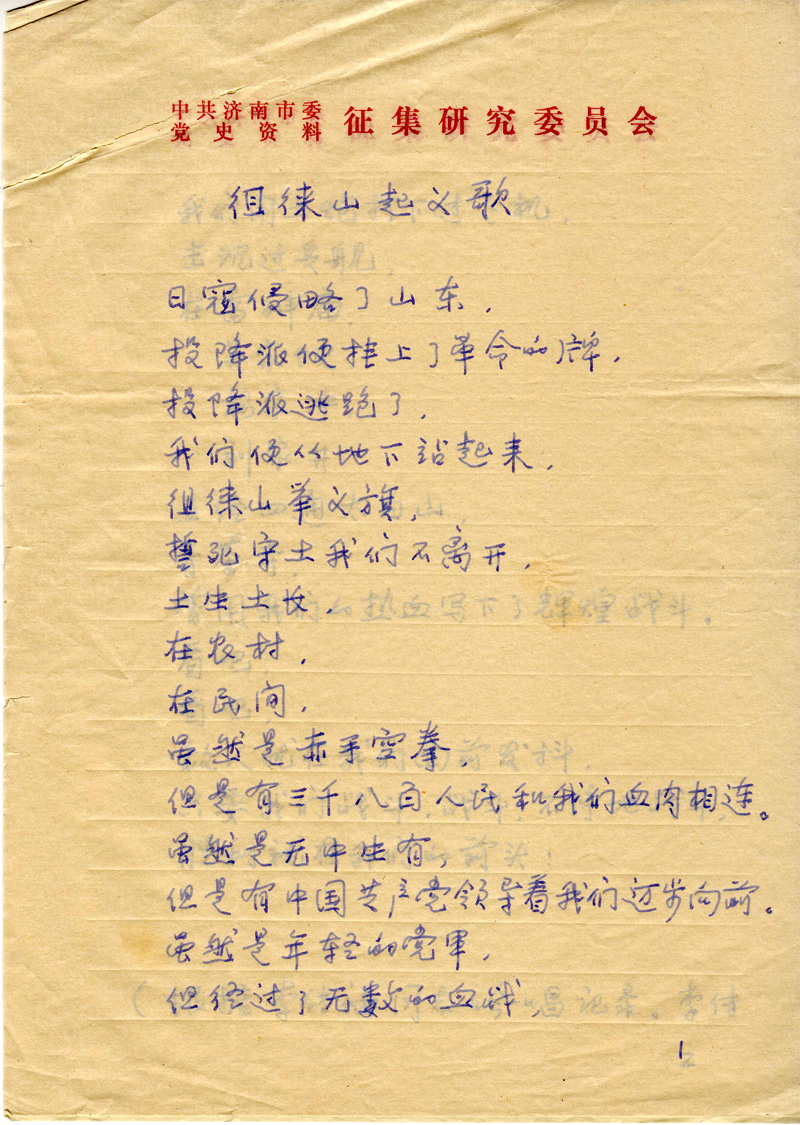 中共济南市委
党史资料 征集研究委员会
徂徕山起义歌
日寇侵略了山东，
投降派便挂上了革命的牌，
投降派逃跑了，
我们便从地下站起来，
徂徕山举义旗，
誓死守土我们不离开，
土生土长，
在农村，
在民间，
虽然是赤手空拳，
但是有三千八百人民和我们血肉相连。
虽然是无中生有，
但是有中国共产党领导着我们迈步向前。
虽然是年轻的党军，
但经过了无数的血战，
1